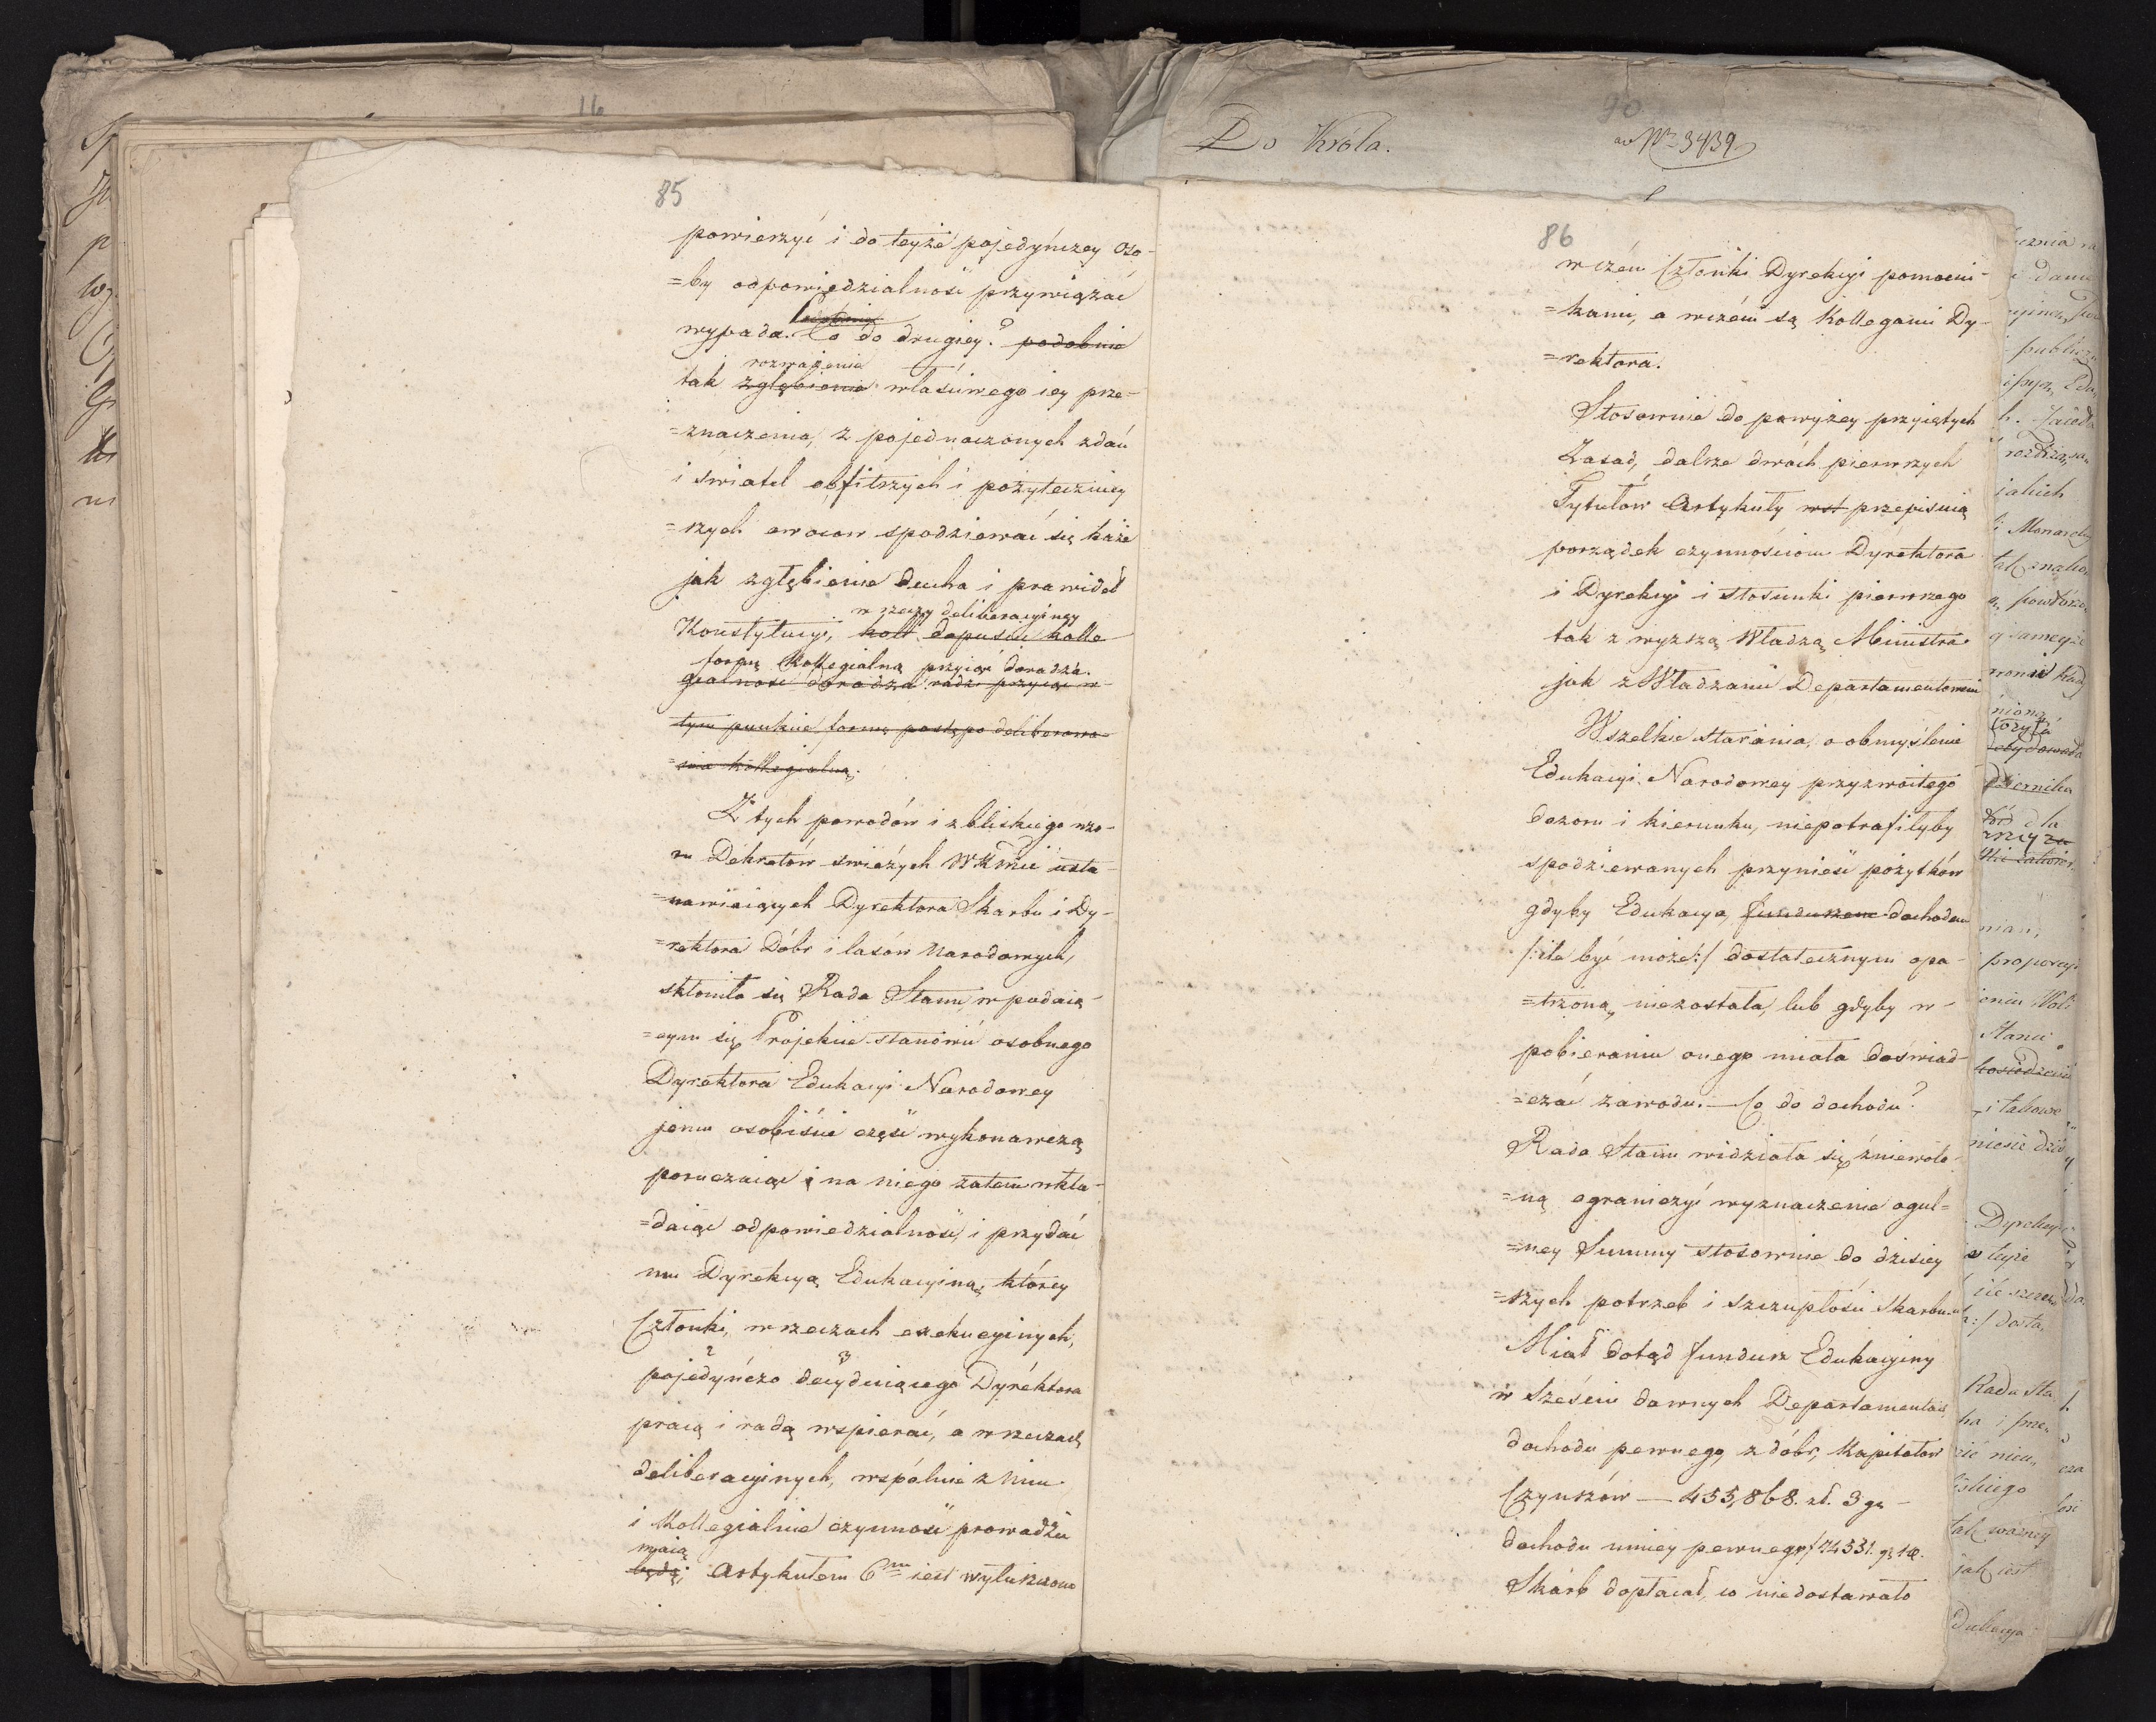 85
powierzyć i do teyże pojedyńczey oso-
=by odpowiedzialność przywiązać
wypada. Co do drugiey? podobnie
rozważenie
tak zgłębienie właściwego iey prze-
=znaczenia, z pojednaczonych zdań
i świateł obfitszych i pożyteczniey
=szych owoców spodziewać się każe
jak zgłębienie ducha i prawideł
w rzeczy deliberacyiney
Konstytucyi, koll dopuścić kolle
formę Kollegialną przyiąć doradza.
gialność doradza radzi przyiąć w
tym punkcie formę postępo deliberowa
nia kollegialną.
Z tych powodów i z bliskiego wzo-
ru Dekretów świeżych WKMci usta-
=nawiaiących Dyrektora Skarbu i Dy-
=rektora Dóbr i lasów Narodowych,
skłoniła się Rada Stanu, w podaią-
=cym się Projekcie stanowić osobnego
Dyrektora Edukacyi Narodowey
jemu osobiście część wykonawczą
poruczaiąc i na niego zatem wkła-
=daiąc odpowiedzialność, i przydać
mu Dyrekcyą Edukacyiną, którey
Członki, w rzeczach exekucyinych,
2 3
pojedyńczo decyduiącego Dyrektora
pracą i radą wspierać, a w rzeczach
deliberacyinych, wspólnie z nim
i Kollegialnie czynność prowadzić
maią
będą; Artykułem 6m iest wyłuszczono
16
Do Króla.
90
ad Nr 3439
86
w czém Członki Dyrekcyi pomocni-
=kami, a w czém są Kollegami Dy-
=rektora.
Stosownie do powyżey przyiętych
Zasad, dalsze dwóch pierwszych
Tytułów Artykuły wst przepisuią
porządek czynnościom Dyrektora
i Dyrekcyi i stosunki pierwszego
tak z wyższą Władzą Ministra
jak z Władzami Departamentowemi
Wszelkie starania, o obmyślenie
Edukacyi Narodowey przyzwoitego
dozoru i kierunku, niepotrafiłyby
spodziewanych przynieść pożytków
gdyby Edukacya, funduszem dochodem
/:ile być może:/ dostatecznym opa-
=trzoną niezostała, lub gdyby w-
pobieraniu onego miała doświad-
=czać zawodu. — Co do dochodu?
Rada Stanu widziała się zniewolo-
=ną ograniczyć wyznaczenie ogul=
=ney Summy stosownie do dzisiey
=szych potrzeb i szczupłości Skarbu.
Miał dotąd fundusz Edukacyiny
w sześciu dawnych Departamentach,
dochodu pewnego z dóbr, Kapitałów
Czynszów — 455,868. zł. 3 gr —
dochodu mniey pewnego
Skarb dopłacał, co niedostawało